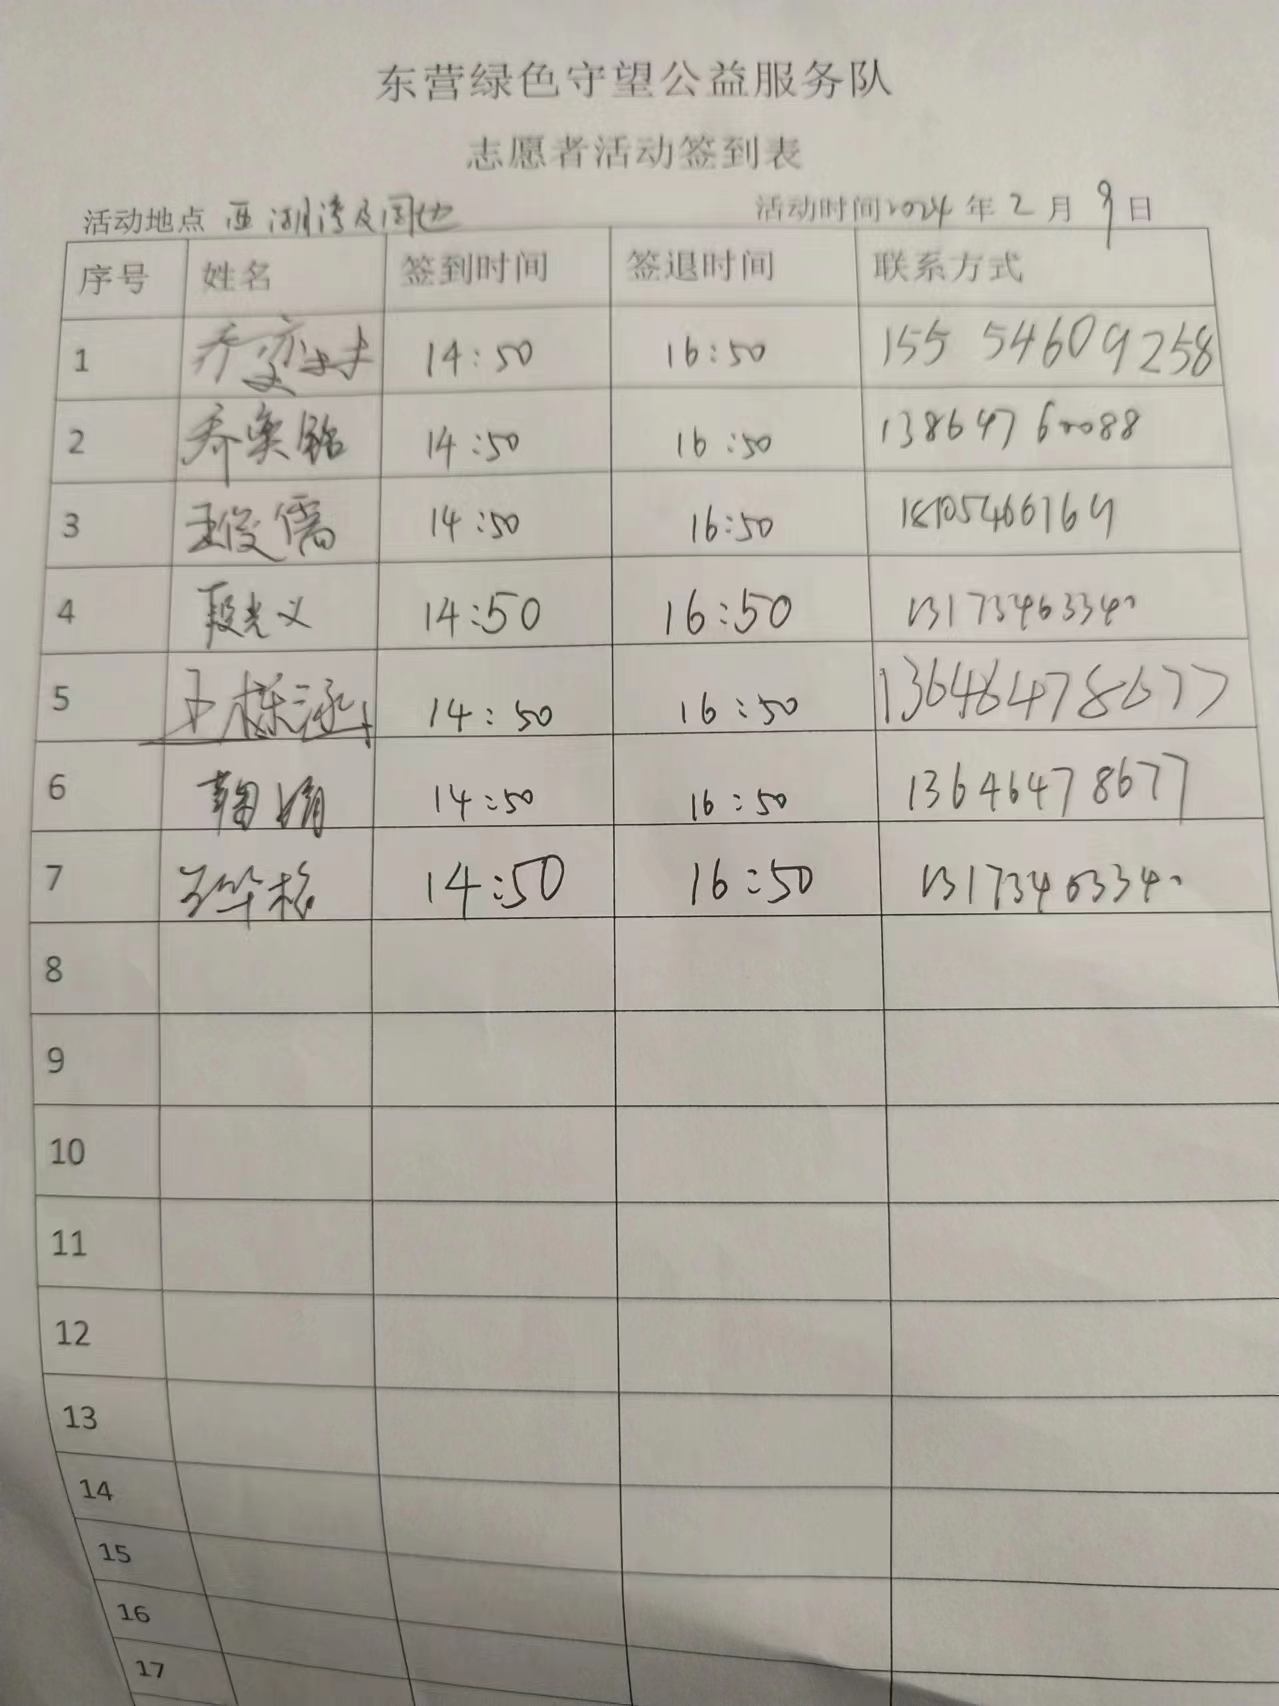 东营绿色守望公益服务队
志愿者活动签到表
活动地点 西湖湾及周边 活动时间2024年2月9日
序号 姓名 签到时间 签退时间 联系方式
1 乔 14:50 16:50 155 54609258
2 乔奕铭 14:50 16:50 13864760088
3 王俊儒 14:50 16:50
4 段光义 14:50 16:50 13173463340
5 王栎涵 14:50 16:50 13646478677
6 鞠娟 14:50 16:50 13646478677
7 王华栋 14:50 16:50 13173463340
8
9
10
11
12
13
14
15
16
17